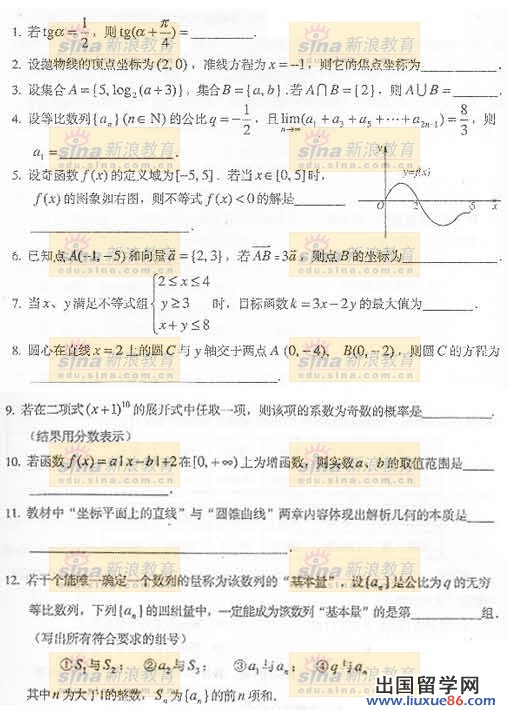 1. 若tgα=1/2，则tg(α+π/4)=________.
2. 设抛物线的顶点坐标为(2,0)，准线方程为x=-1，则它的焦点坐标为________.
3. 设集合A={5,log₂(a+3)}，集合B={a,b}.若A∩B={2}，则A∪B=________.
4. 设等比数列{aₙ}(n∈N)的公比q=-1/2，且lim(n→∞)(a₁+a₃+a₅+⋯+a₂ₙ₋₁)=8/3，则
a₁=________.
5. 设奇函数f(x)的定义域为[-5,5]．若当x∈[0,5]时，
f(x)的图象如右图，则不等式f(x)<0的解是________
________.
y
y=f(x)
O 2 5 x
6. 已知点A(-1,-5)和向量a={2,3}，若AB=3a，则点B的坐标为________.
7. 当x、y满足不等式组{2≤x≤4 y≥3 x+y≤8 时，目标函数k=3x-2y的最大值为________.
8. 圆心在直线x=2上的圆C与y轴交于两点A(0,-4)，B(0,-2)，则圆C的方程为
________.
9. 若在二项式(x+1)¹⁰的展开式中任取一项，则该项的系数为奇数的概率是________.
（结果用分数表示）
10. 若函数f(x)=a|x-b|+2在[0,+∞)上为增函数，则实数a、b的取值范围是____
________.
11. 教材中“坐标平面上的直线”与“圆锥曲线”两章内容体现出解析几何的本质是____
________.
12. 若干个能唯一确定一个数列的量称为该数列的“基本量”，设{aₙ}是公比为q的无穷
等比数列，下列{aₙ}的四组量中，一定能成为该数列“基本量”的是第________组.
（写出所有符合要求的组号）
①S₁与S₂； ②a₂与S₃； ③a₁与aₙ； ④q与aₙ
其中n为大于1的整数，Sₙ为{aₙ}的前n项和.
sina新浪教育
edu.sina.com.cn
出国留学网
www.liuxue86.com